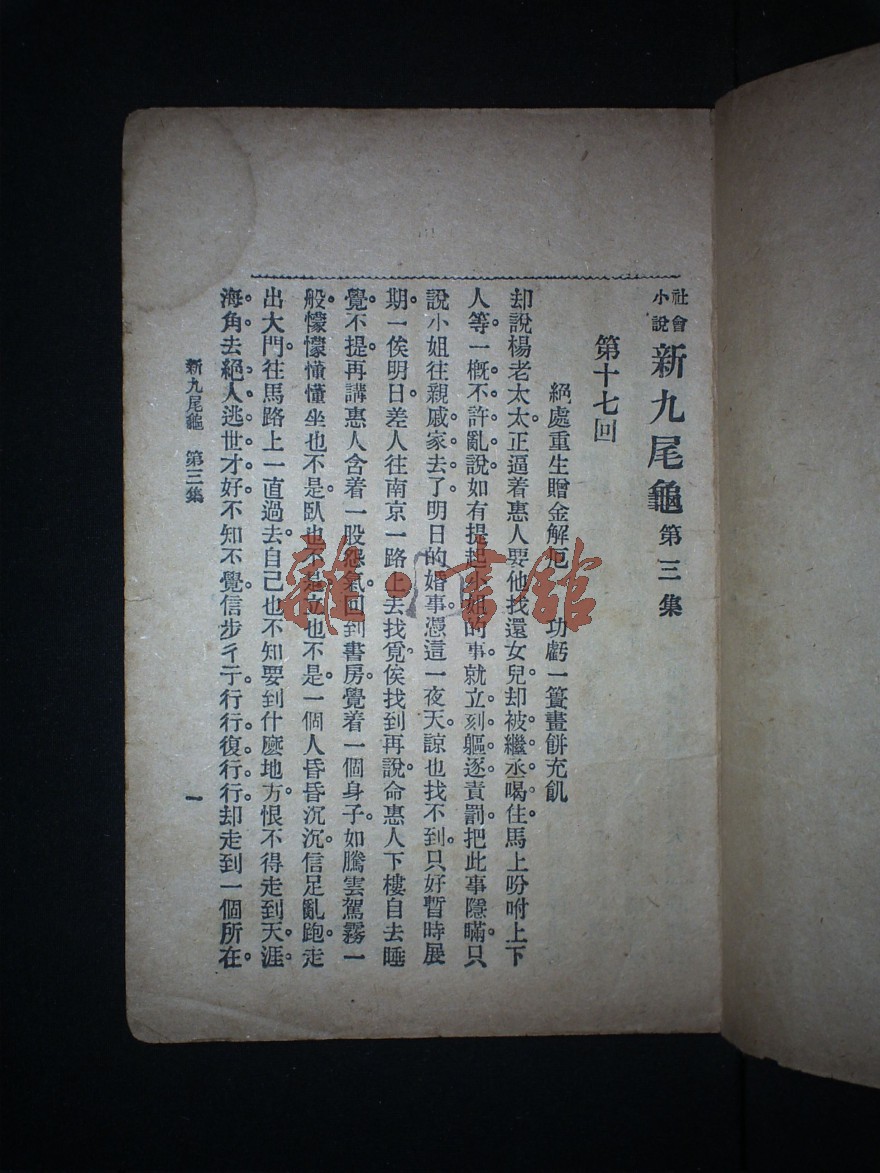 社會小說 新九尾龜 第三集
第十七回
絕處重生贈金解厄 功虧一簣畫餅充飢
却說楊老太太正逼着惠人要他找還女兒却被繼丞喝住馬上吩咐上下
人等一概不許亂說如有提起小姐的事就立刻軀逐責罰把此事隱瞞只
說小姐往親戚家去了明日的婚事憑這一夜天諒也找不到只好暫時展
期一俟明日差人往南京一路上去找覓俟找到再說命惠人下樓自去睡
覺不提再講惠人含着一股怨氣回到書房覺着一個身子如騰雲駕霧一
般懞懞懂懂坐也不是臥也不是立也不是一個人昏昏沉沉信足亂跑走
出大門往馬路上一直過去自己也不知要到什麽地方恨不得走到天涯
海角去絕人逃世才好不知不覺信步彳亍行行復行行却走到一個所在
新九尾龜 第三集
一
雜·書館